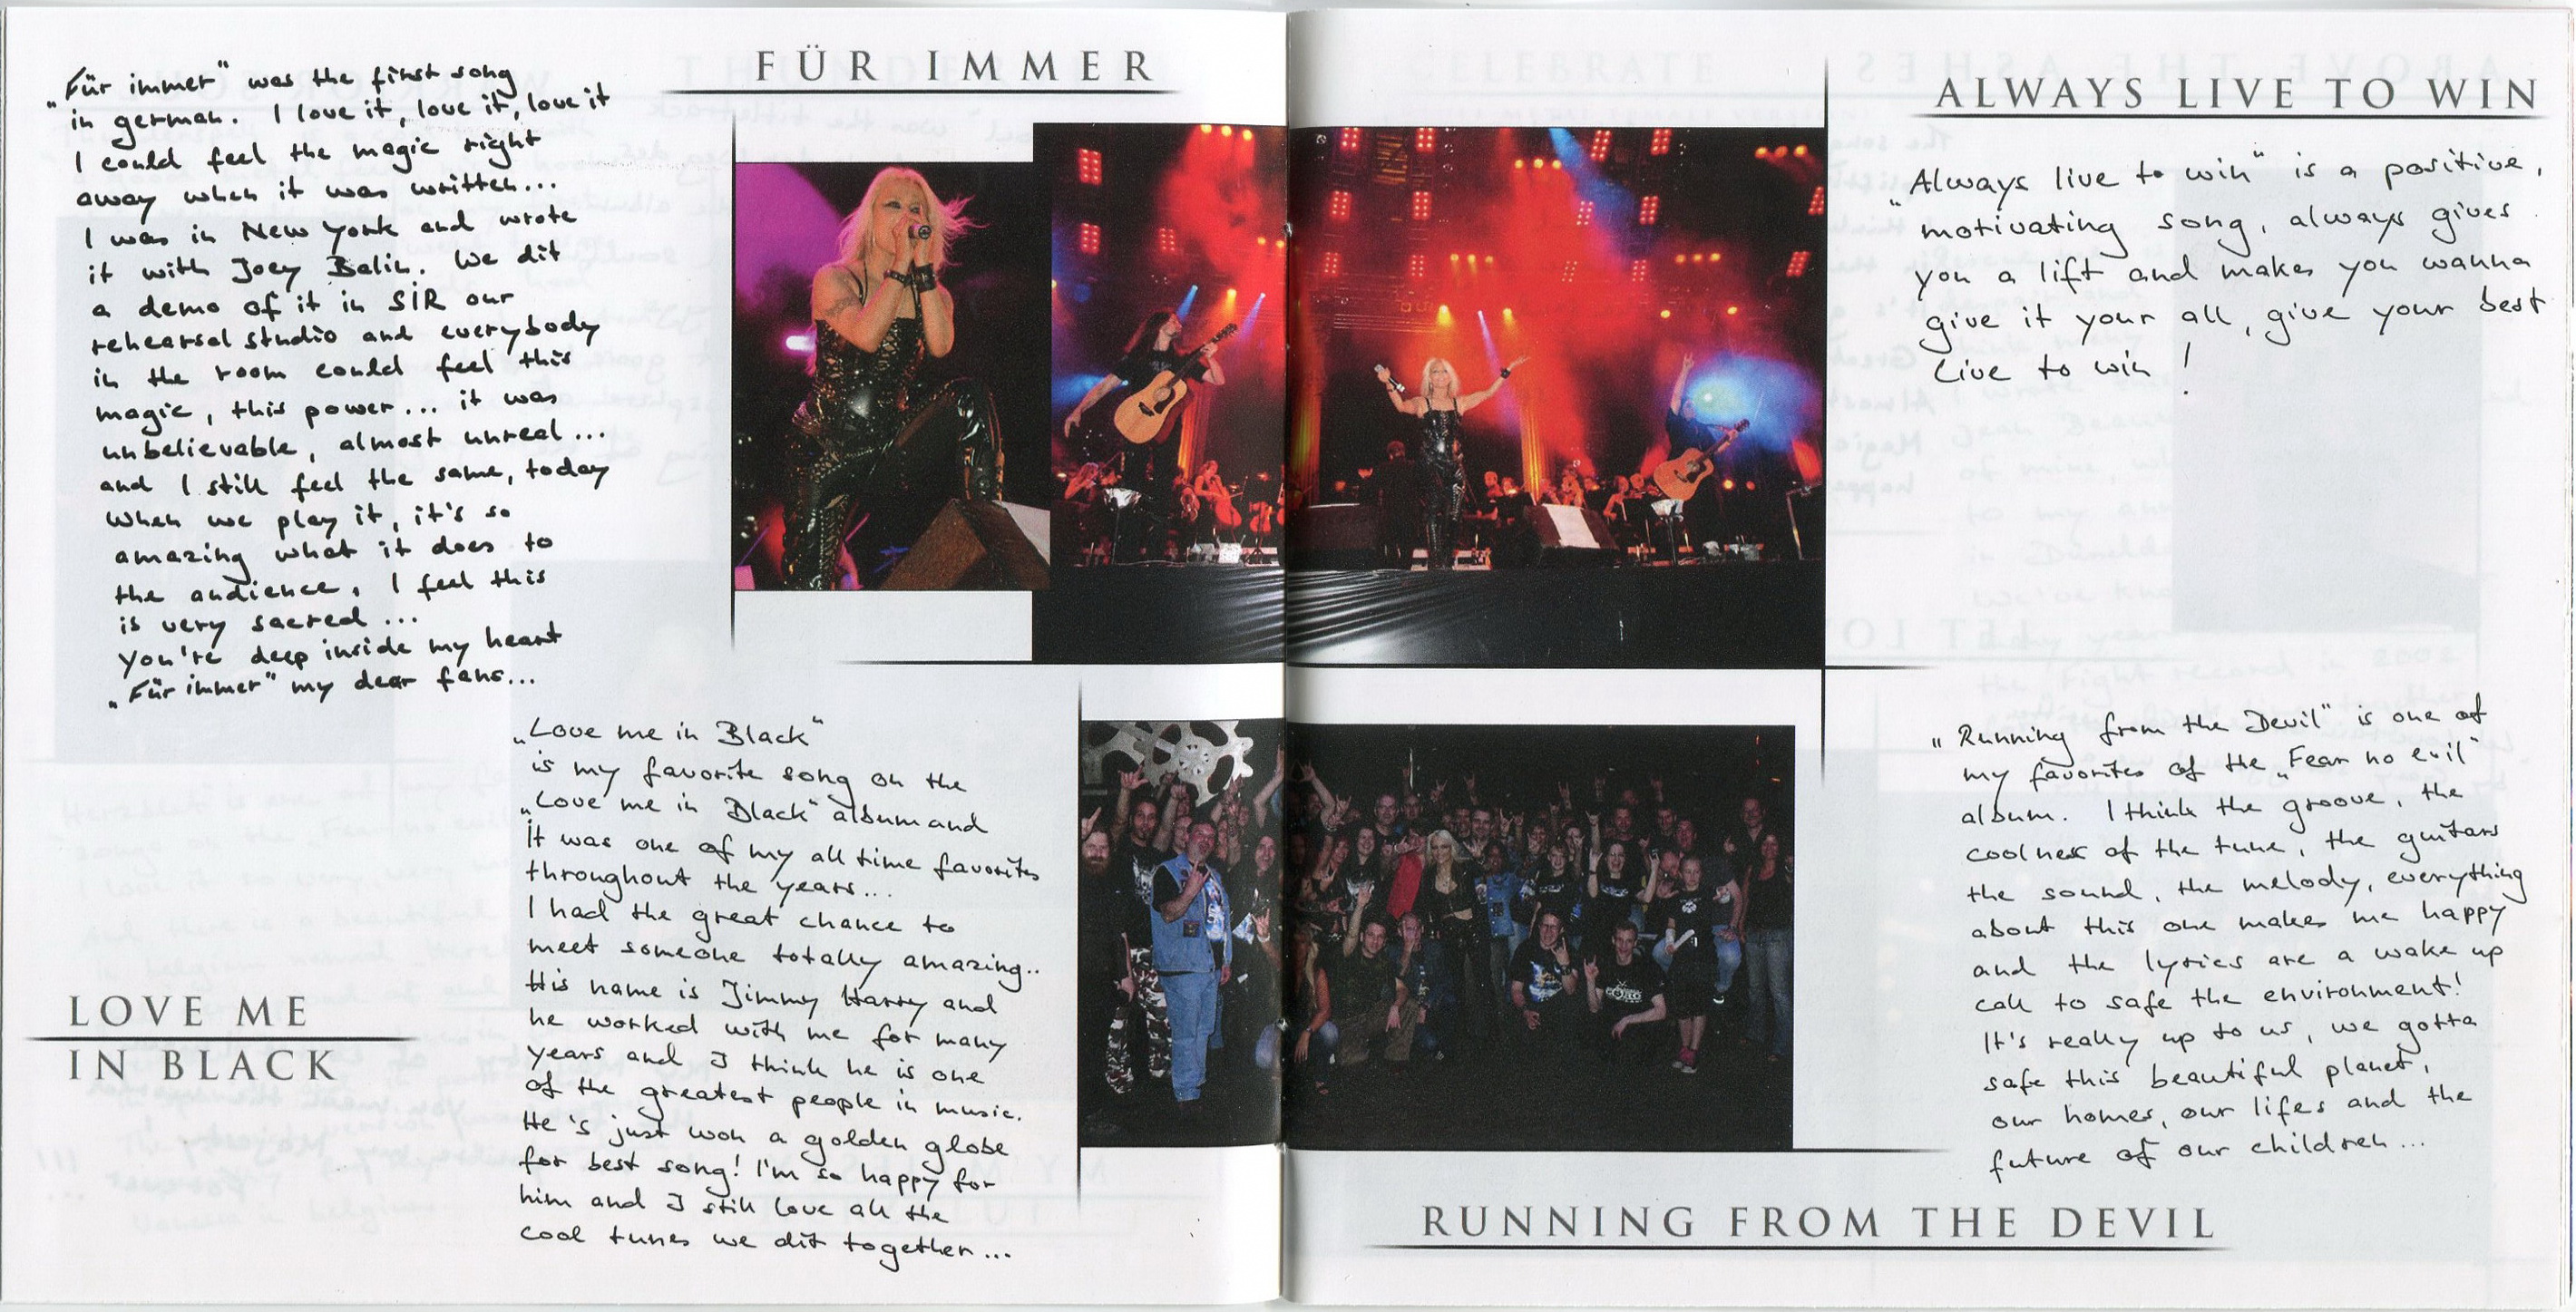 FÜR IMMER
„Für immer" was the first song
in german. I love it, love it, love it
I could feel the magic right
away when it was written...
I was in New York and wrote
it with Joey Balin. We dit
a demo of it in SIR our
rehearsal studio and everybody
in the room could feel this
magic, this power... it was
unbelievable, almost unreal...
and I still feel the same, today
when we play it, it's so
amazing what it does to
the audience. I feel this
is very sacred...
you're deep inside my heart
„Für immer" my dear fans...
LOVE ME
IN BLACK
„Love me in Black"
is my favorite song on the
„Love me in Black" album and
It was one of my all time favorites
throughout the years...
I had the great chance to
meet someone totally amazing..
His name is Jimmy Harry and
he worked with me for many
years and I think he is one
of the greatest people in music.
He's just won a golden globe
for best song! I'm so happy for
him and I still love all the
cool tunes we dit together...
ALWAYS LIVE TO WIN
„Always live to win" is a positive,
motivating song, always gives
you a lift and makes you wanna
give it your all, give your best
Live to win!
„Running from the Devil" is one of
my favorites of the „Fear no evil"
album. I think the groove, the
coolness of the tune, the guitars
the sound, the melody, everything
about this one makes me happy
and the lyrics are a wake up
call to safe the environment!
It's really up to us, we gotta
safe this beautiful planet,
our homes, our lifes and the
future of our children...
RUNNING FROM THE DEVIL